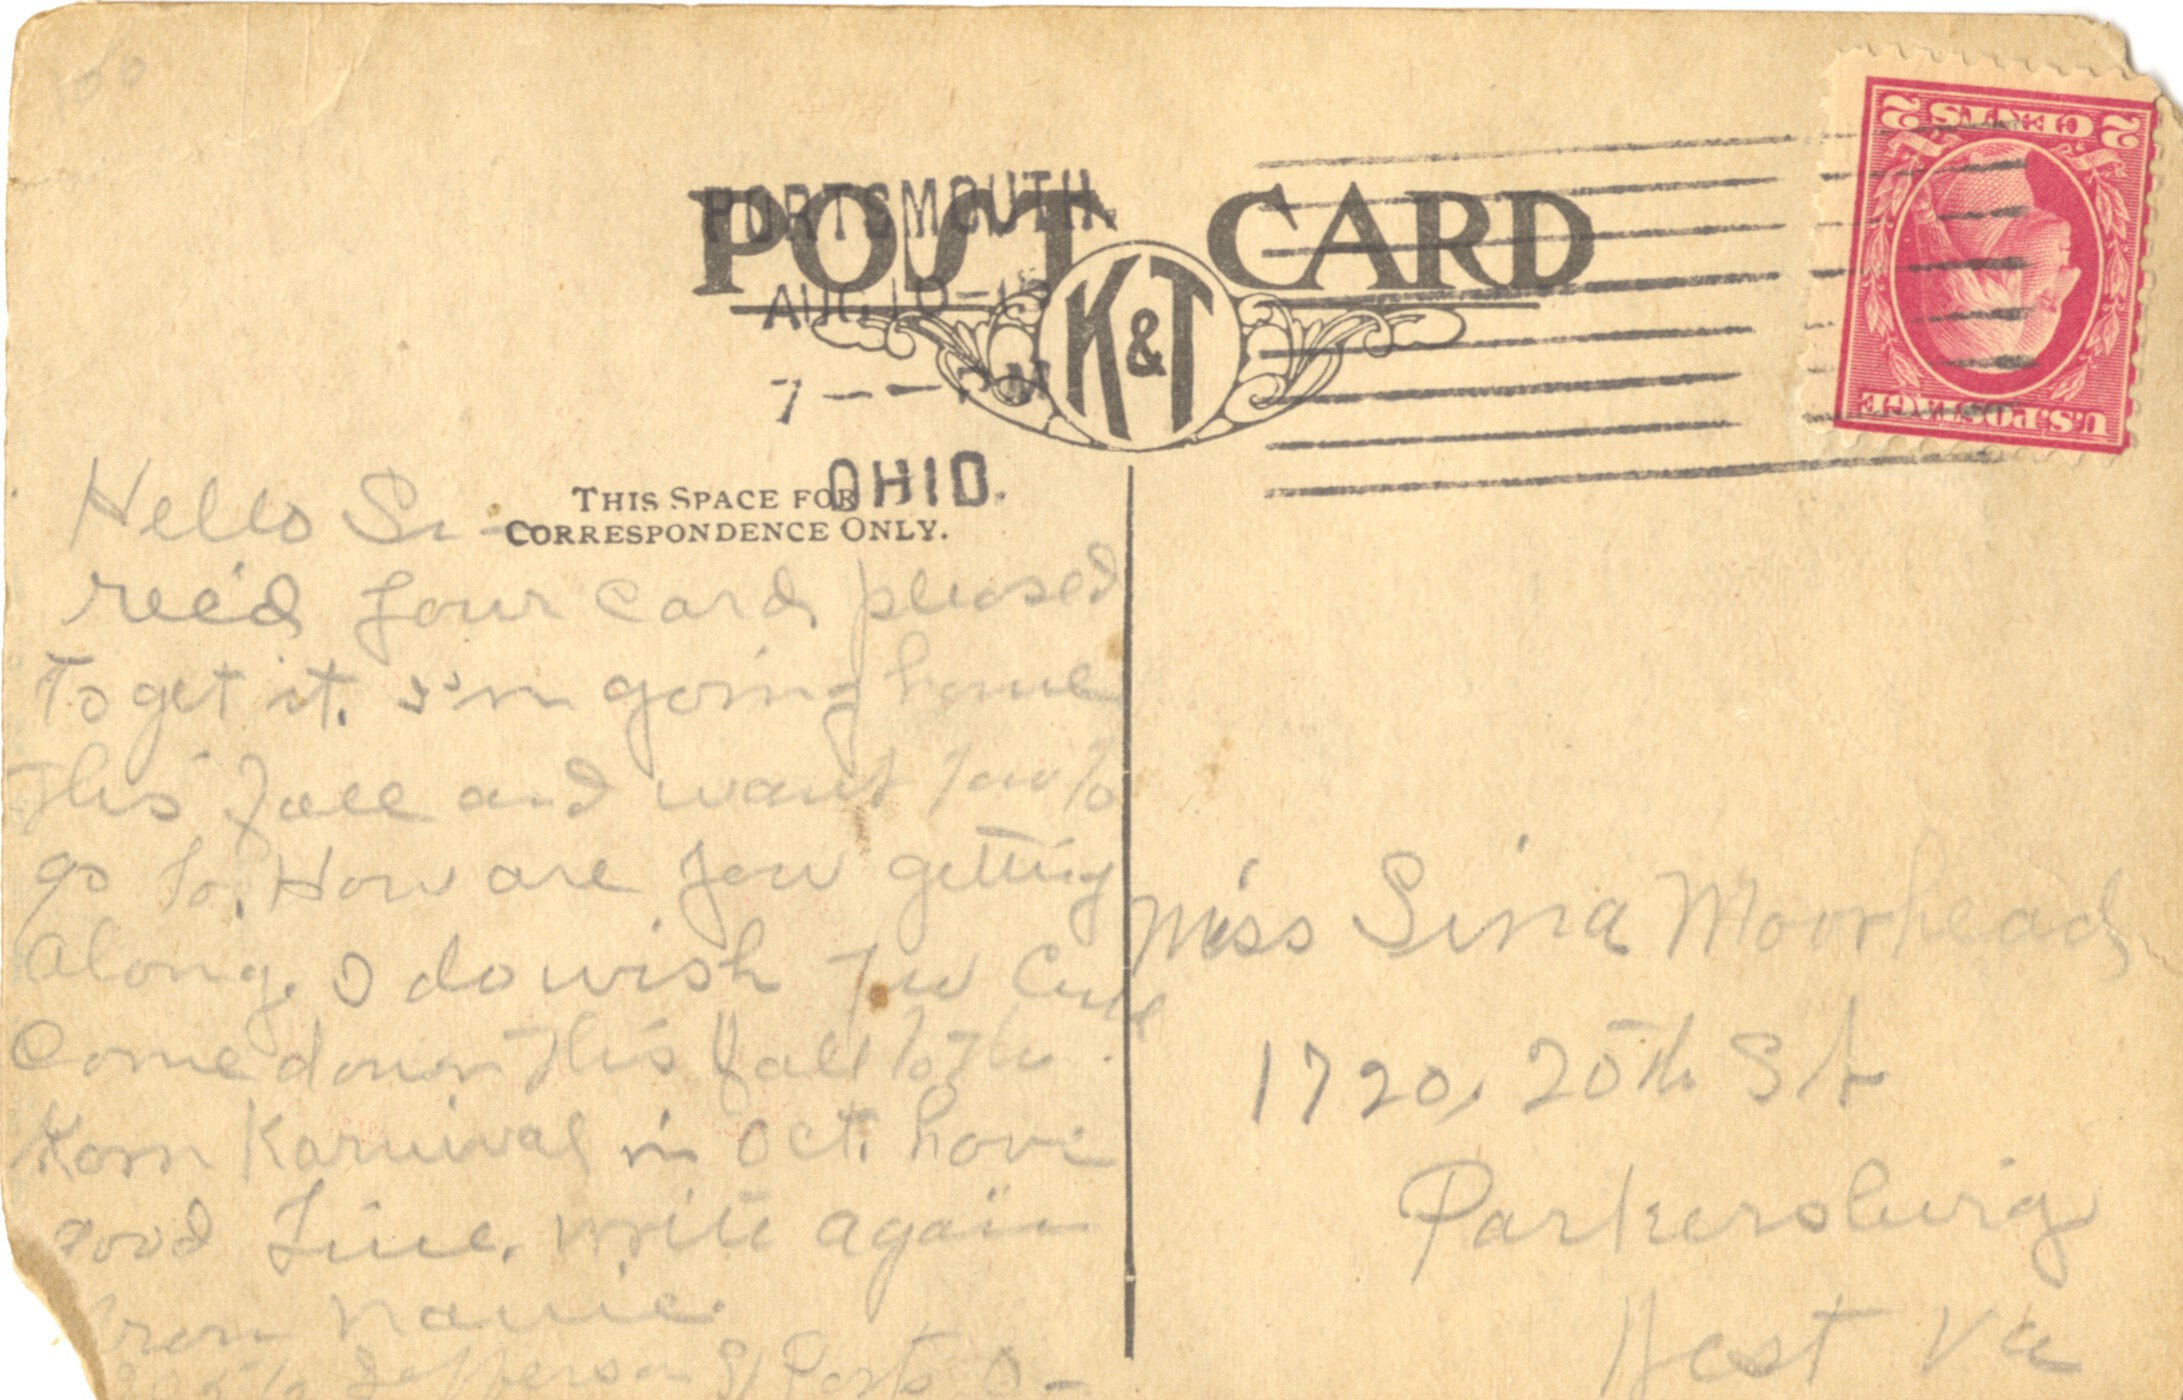 POST CARD
K&T
PORTSMOUTH,
AUG 10-18
7--PM
OHIO.
2 CENTS 2
U.S. POSTAGE
THIS SPACE FOR
CORRESPONDENCE ONLY.
Hello Si-
rec'd your card, pleased
to get it. I'm going home
this fall and want you to
go to. How are you getting
along. I do wish you could
come down this fall to the
Korn Karnival in Oct. have
good time. write again
from
Jefferson St Ports O-
Miss Sina Moorhead
1720, 20th St
Parkersburg
West Va